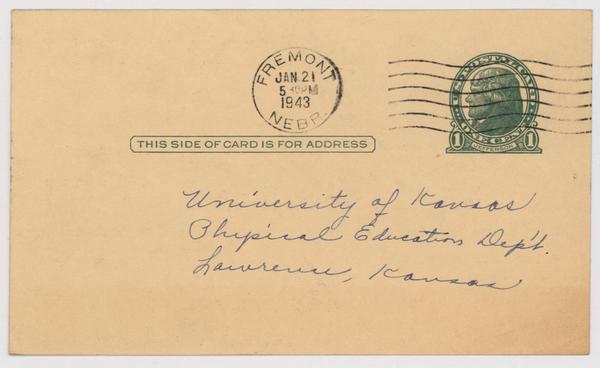 FREMONT
JAN 21
5 30 PM
1943
NEBR.
U.S. POSTAL CARD
ONE CENT
1 JEFFERSON 1
THIS SIDE OF CARD IS FOR ADDRESS
University of Kansas
Physical Education Dep't.
Lawrence, Kansas